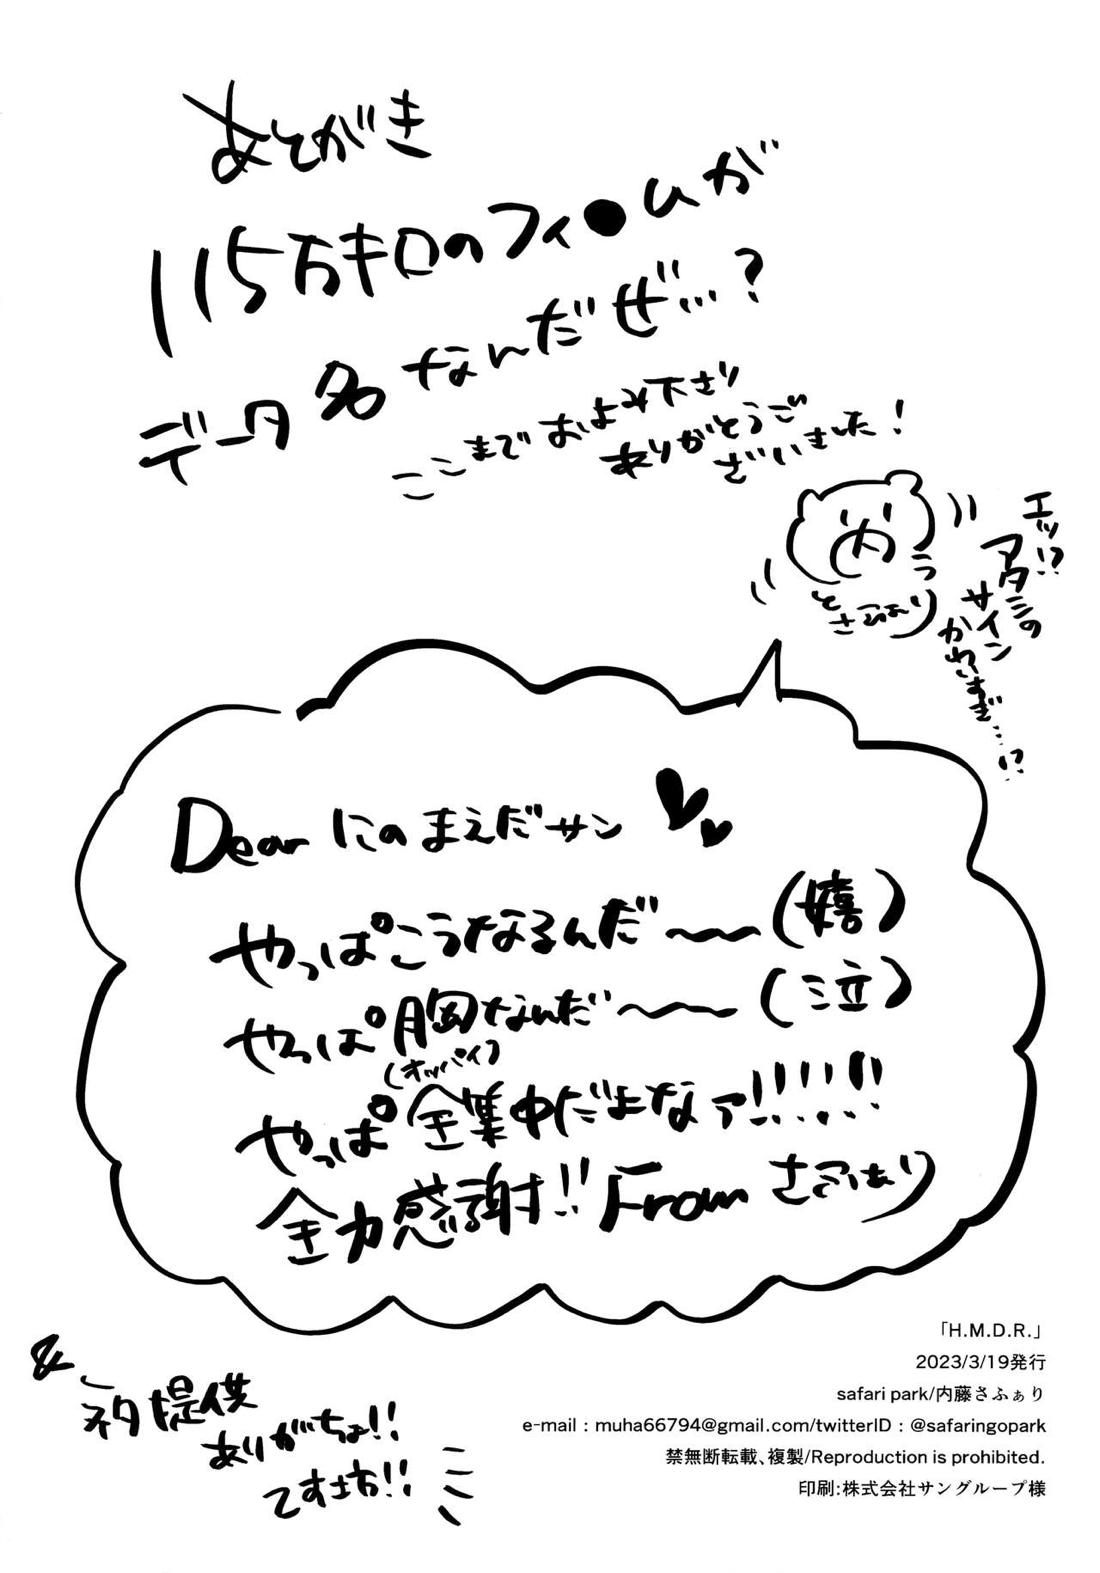 あとがき
115万キロのフィ●ムが
データ名なんだぜ…?
ここまでおよみ下さり
ありがとうご
ざいました!
エッ!?
アタシの
サイン
かわいすぎ…!?
内
とう
さふぁり
Dear にのまえだサン
やっぱこうなるんだ〜〜(嬉)
やっぱ胸なんだ〜〜(泣)
(オッパイ)
やっぱ全集中だよなァ!!!!!
全力感謝!! From さふぁり
&
ネタ提供
ありがちょ!!
てす坊!!
「H.M.D.R.」
2023/3/19発行
safari park/内藤さふぁり
e-mail : muha66794@gmail.com/twitterID : @safaringopark
禁無断転載、複製/Reproduction is prohibited.
印刷:株式会社サングループ様